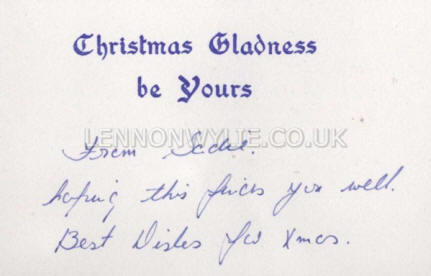 Christmas Gladness
be Yours
LENNONWYLIE.CO.UK
From Sadie.
hoping this finds you well.
Best Wishes for Xmas.